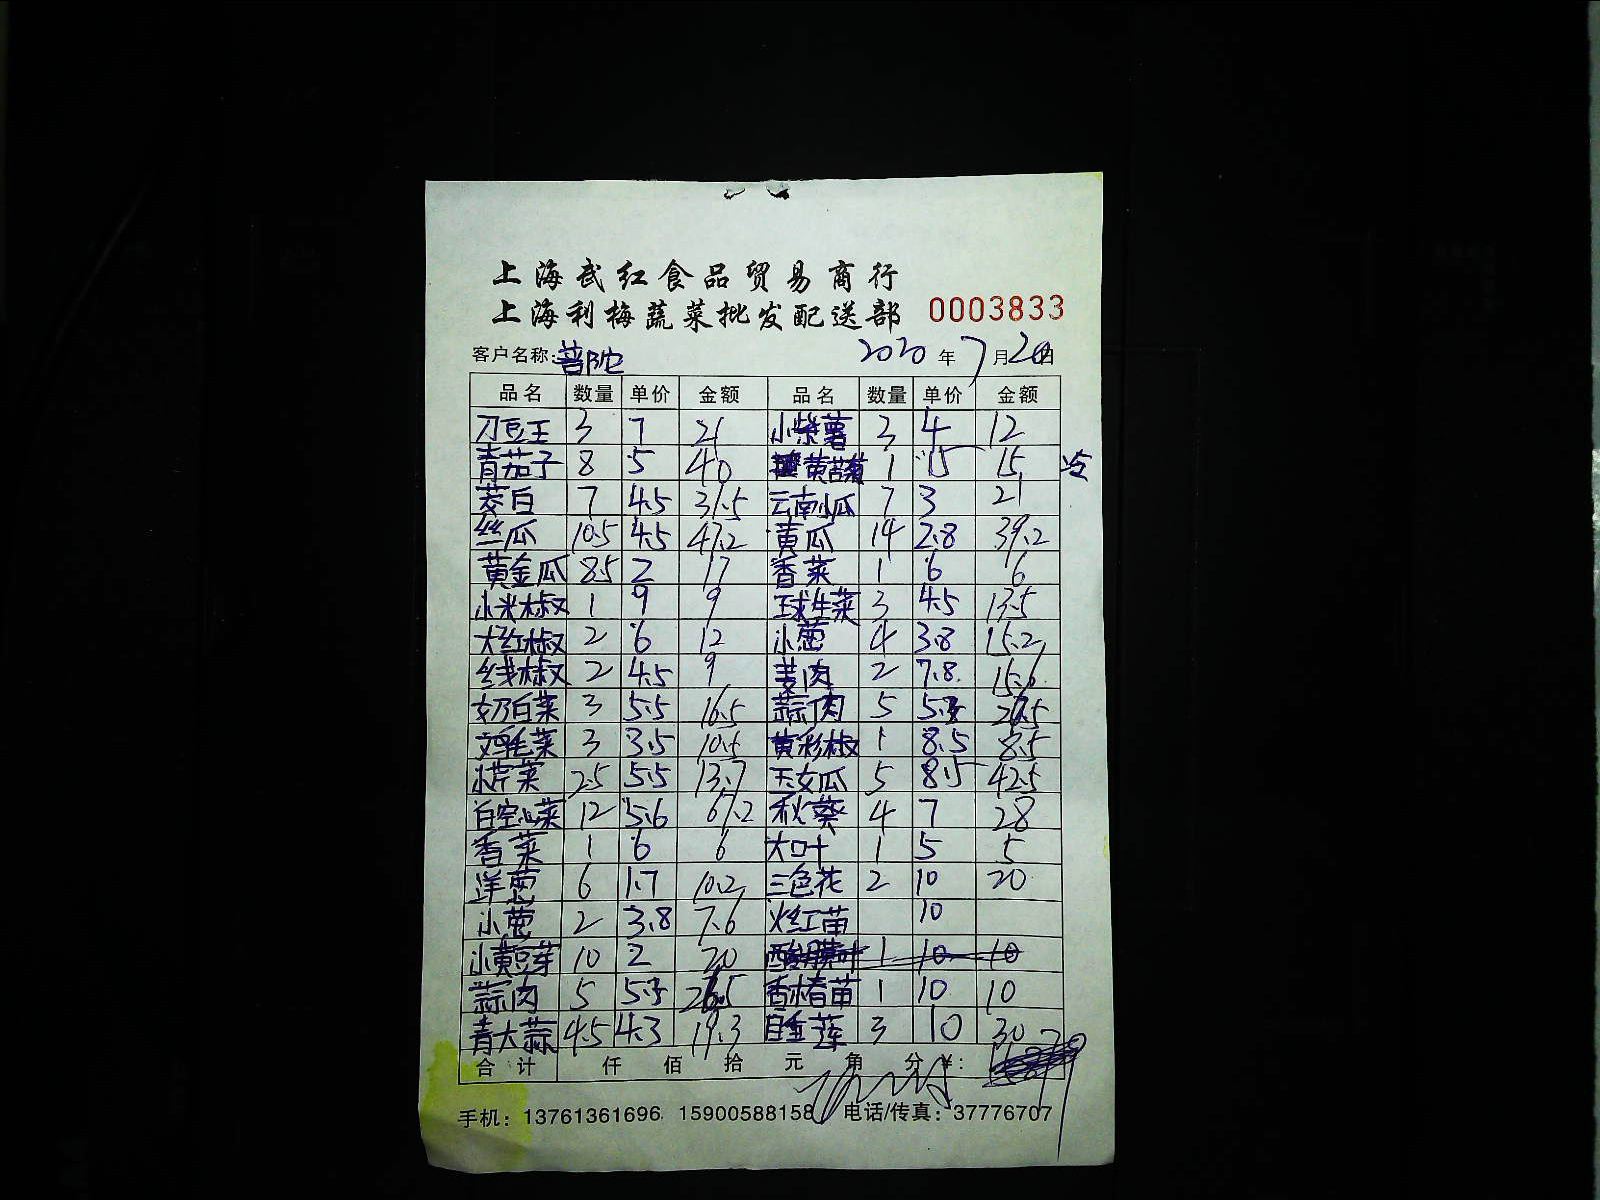 上海武红食品贸易商行
上海利梅蔬菜批发配送部 0003833
客户名称: 普陀 2020 年 7 月 20 日
品名 数量 单价 金额 品名 数量 单价 金额
刀豆王 3 7 21 小紫薯 3 4 12
青茄子 8 5 40 黄苦菊 1 15 15
茭白 7 4.5 31.5 云南小瓜 7 3 21
丝瓜 10.5 4.5 47.2 黄瓜 14 2.8 39.2
黄金瓜 8.5 2 17 香菜 1 6 6
小米椒 1 9 9 球生菜 3 4.5 13.5
大红椒 2 6 12 小葱 4 3.8 15.2
线椒 2 4.5 9 姜肉 2 7.8 15.6
奶白菜 3 5.5 16.5 蒜肉 5 5.3 26.5
鸡毛菜 3 3.5 10.5 黄彩椒 1 8.5 8.5
水芹菜 2.5 5.5 13.7 玉女瓜 5 8.5 42.5
白空心菜 12 5.6 67.2 秋葵 4 7 28
香菜 1 6 6 大叶 1 5 5
洋葱 6 1.7 10.2 三色花 2 10 20
小葱 2 3.8 7.6 火红苗 10
小黄豆芽 10 2 20 酸膜叶 1 10 10
蒜肉 5 5.3 26.5 香椿苗 1 10 10
青大蒜 4.5 4.3 19.3 白玉莲 3 10 30
合计 仟 佰 拾 元 角 分 ¥:
手机: 13761361696 15900588158 电话/传真: 37776707